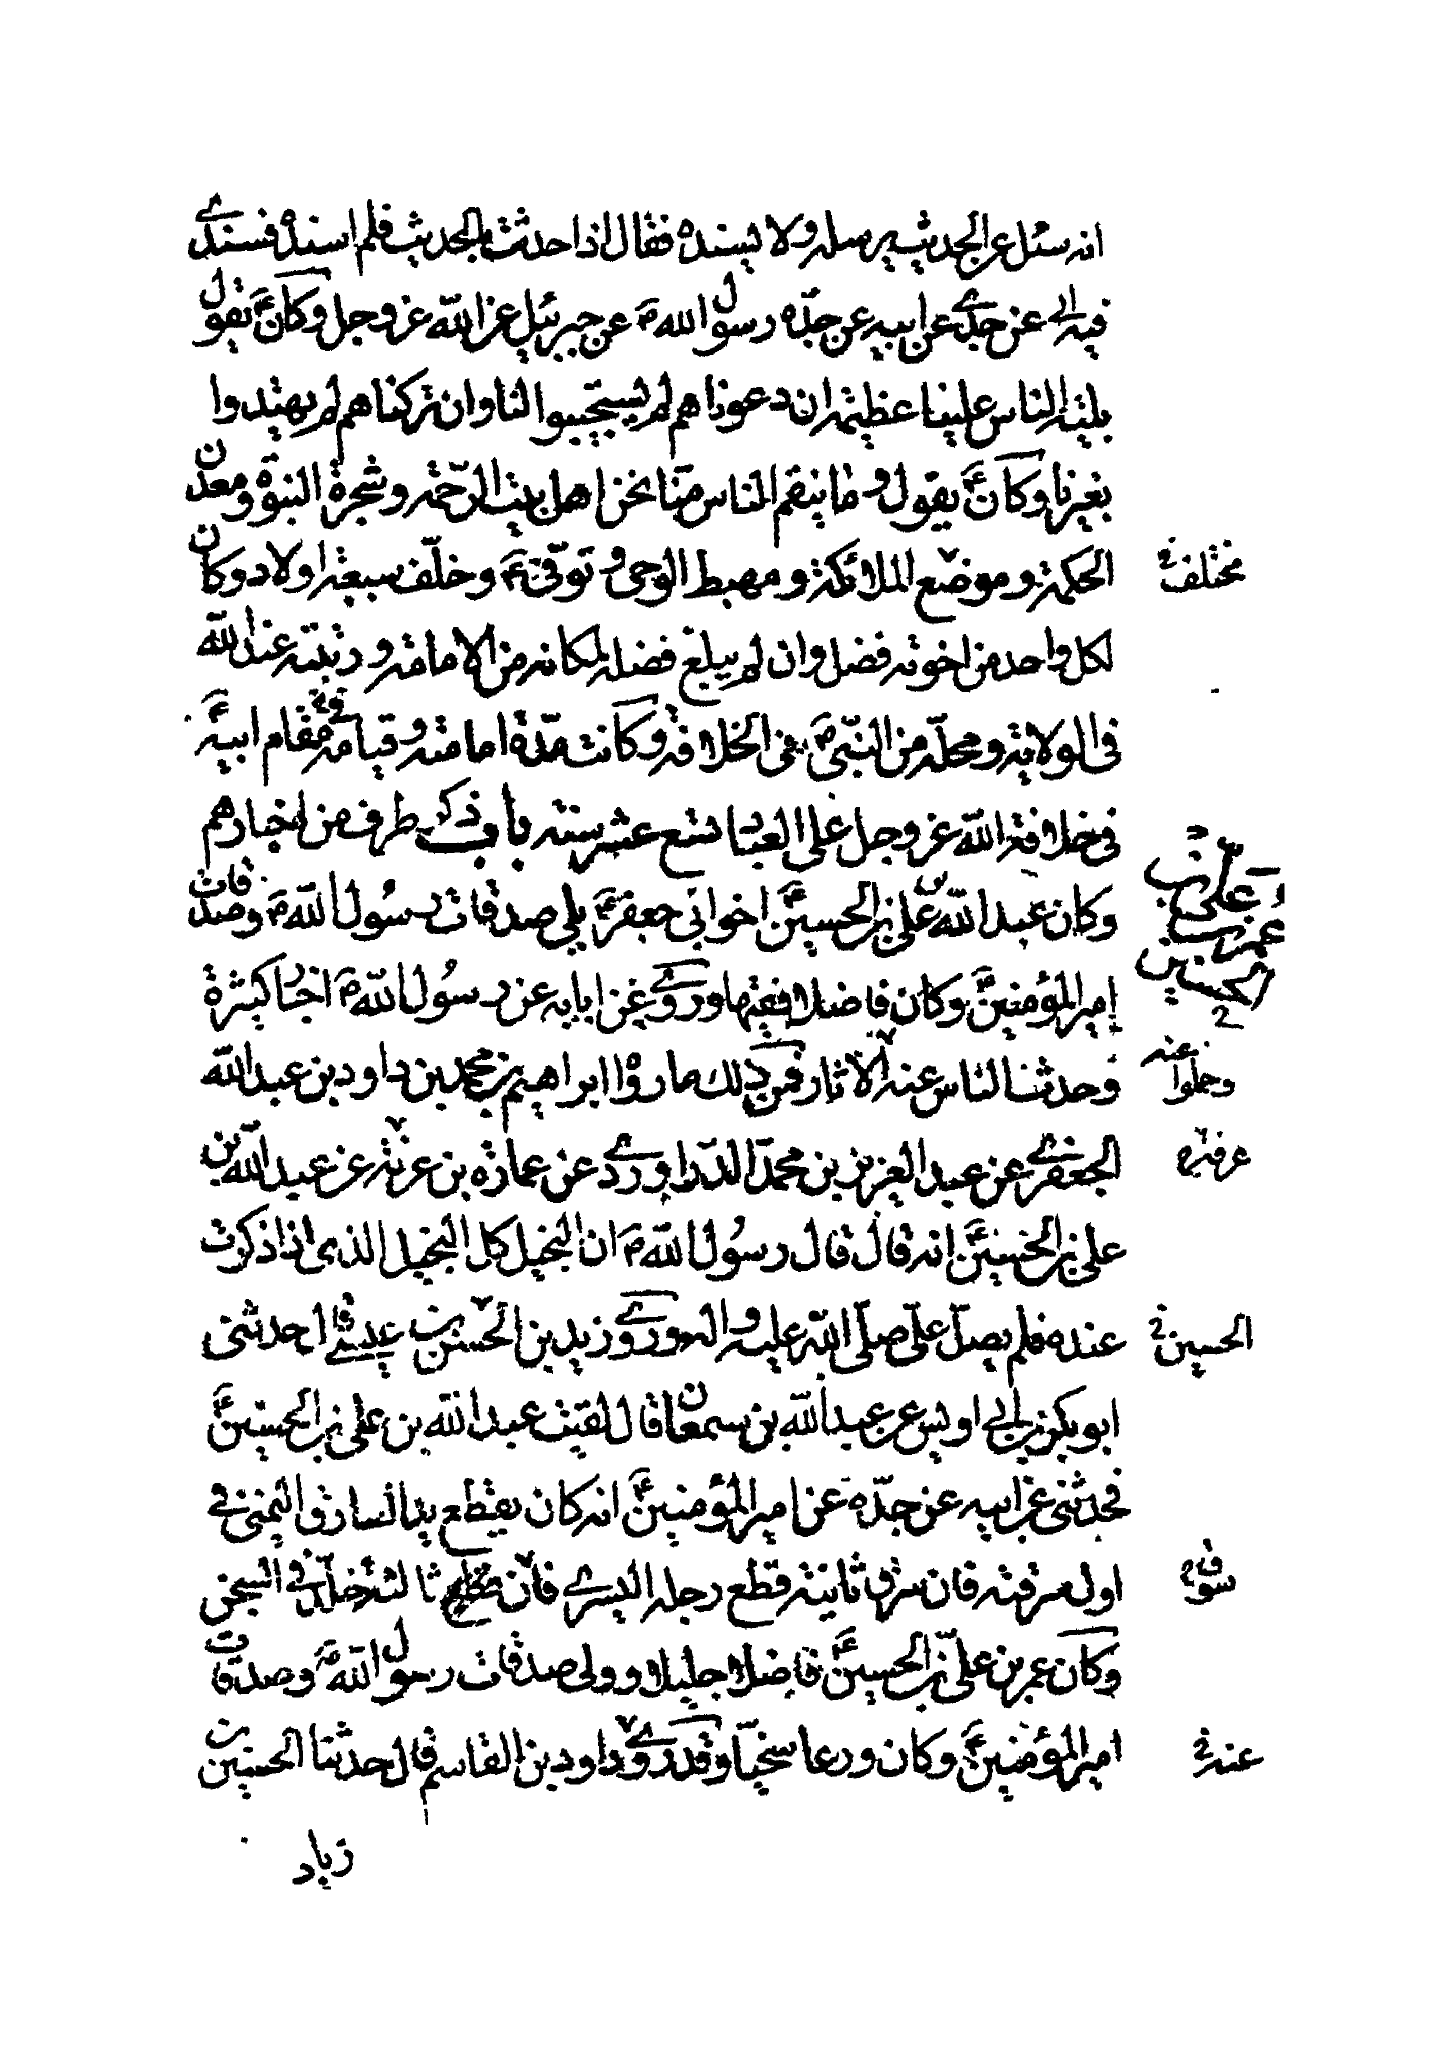 انه سئل عن الحديث يرسله ولا يسنده فقال اذا حدثت بالحديث فلم اسنده فسندى
فيه ابى عن جدى عن ابيه عن جدّه رسول الله ص عن جبرئيل عن الله عز وجل وكان ع يقول
بلية الناس علينا عظيمة ان دعوناهم لم يستجيبوا لنا وان تركناهم لم يهتدوا
بغيرنا وكان ع يقول وما ينقم الناس منّا نحن اهل بيت الرّحمة وشجرة النبوّة ومعدن
الحكمة وموضع الملائكة ومهبط الوحى وتوفّى ع وخلّف سبعة اولاد وكان
مختلف
لكل واحد من اخوته فضل وان لم يبلغ فضله لمكانه من الامامة ورتبته عند الله
فى الولاية ومحلّه من النبّى ص فى الخلافة وكانت مدّة امامته وقيامه مقام ابيه ع
فى خلافة الله عز وجل على العباد تسع عشر سنة باب ذكر طرف من اخبارهم
وكان عبد الله بن على بن الحسين ع اخو ابى جعفر ع يلى صدقات رسول الله ص وصدقات
امير المؤمنين ع وكان فاضلا فقيها وروى عن ابايه عن رسول الله ص اخبارا كثيرة
وحدثنا لناس عنه الاثار فمن ذلك ما رواه ابراهيم بن محمد بن داود بن عبد الله
وحملوا عنه
الجعفرى عن عبد العزيز بن محمد الدراوردى عن عمارة بن عزية عن عبد الله بن
على بن الحسين ع انه قال قال رسول الله ص ان البخيل كل البخيل الذى اذا ذكرت
عنده فلم يصلّ علىّ صلّى الله عليه واله وروى زيد بن الحسن بن عيسى قال حدثنى
الحسين
ابو بكر بن ابى اويس عن عبد الله بن سمعان قال لقيت عبد الله بن على بن الحسين ع
فحدثنى عن ابيه عن جدّه عن امير المؤمنين ع انه كان يقطع يد السارق اليمنى فى
اول سرقته فان سرق ثانية قطع رجله اليسرى فان ثالثة خلّد فى السجن
سرق
وكان عمر بن علىّ بن الحسين ع فاضلا جليلا وولى صدقات رسول الله ص وصدقات
امير المؤمنين ع وكان ورعا سخيّا وقد روى داود بن القاسم قال حدثنا الحسين بن
عنه
زياد